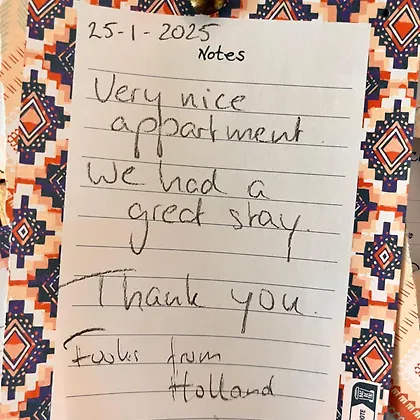 25-1-2025
Notes
Very nice
appartment.
We had a
great stay.
Thank you.
from
Holland